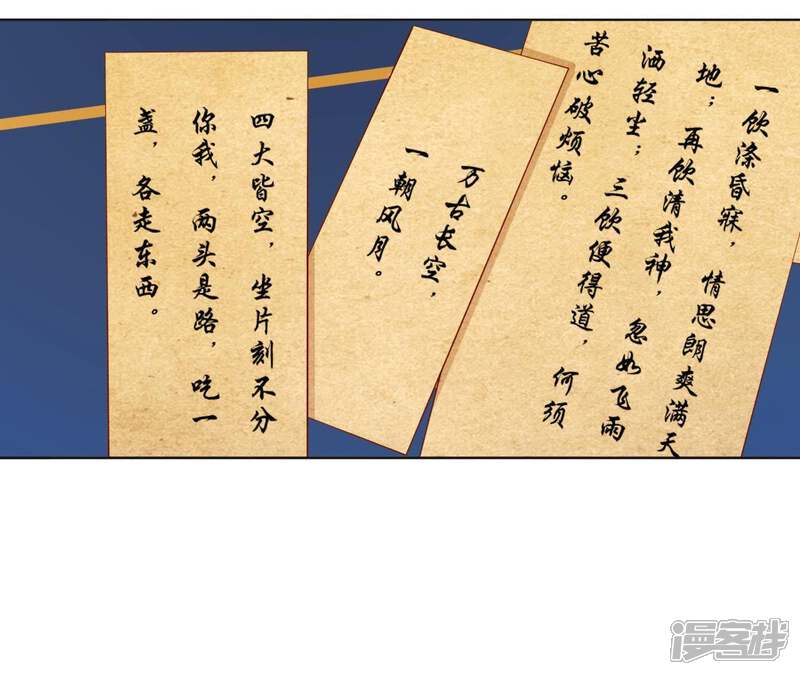 一饮涤昏寐，情思朗爽满天
地；再饮清我神，忽如飞雨
洒轻尘；三饮便得道，何须
苦心破烦恼。
万古长空，
一朝风月。
四大皆空，坐片刻不分
你我，两头是路，吃一
盏，各走东西。
漫客栈